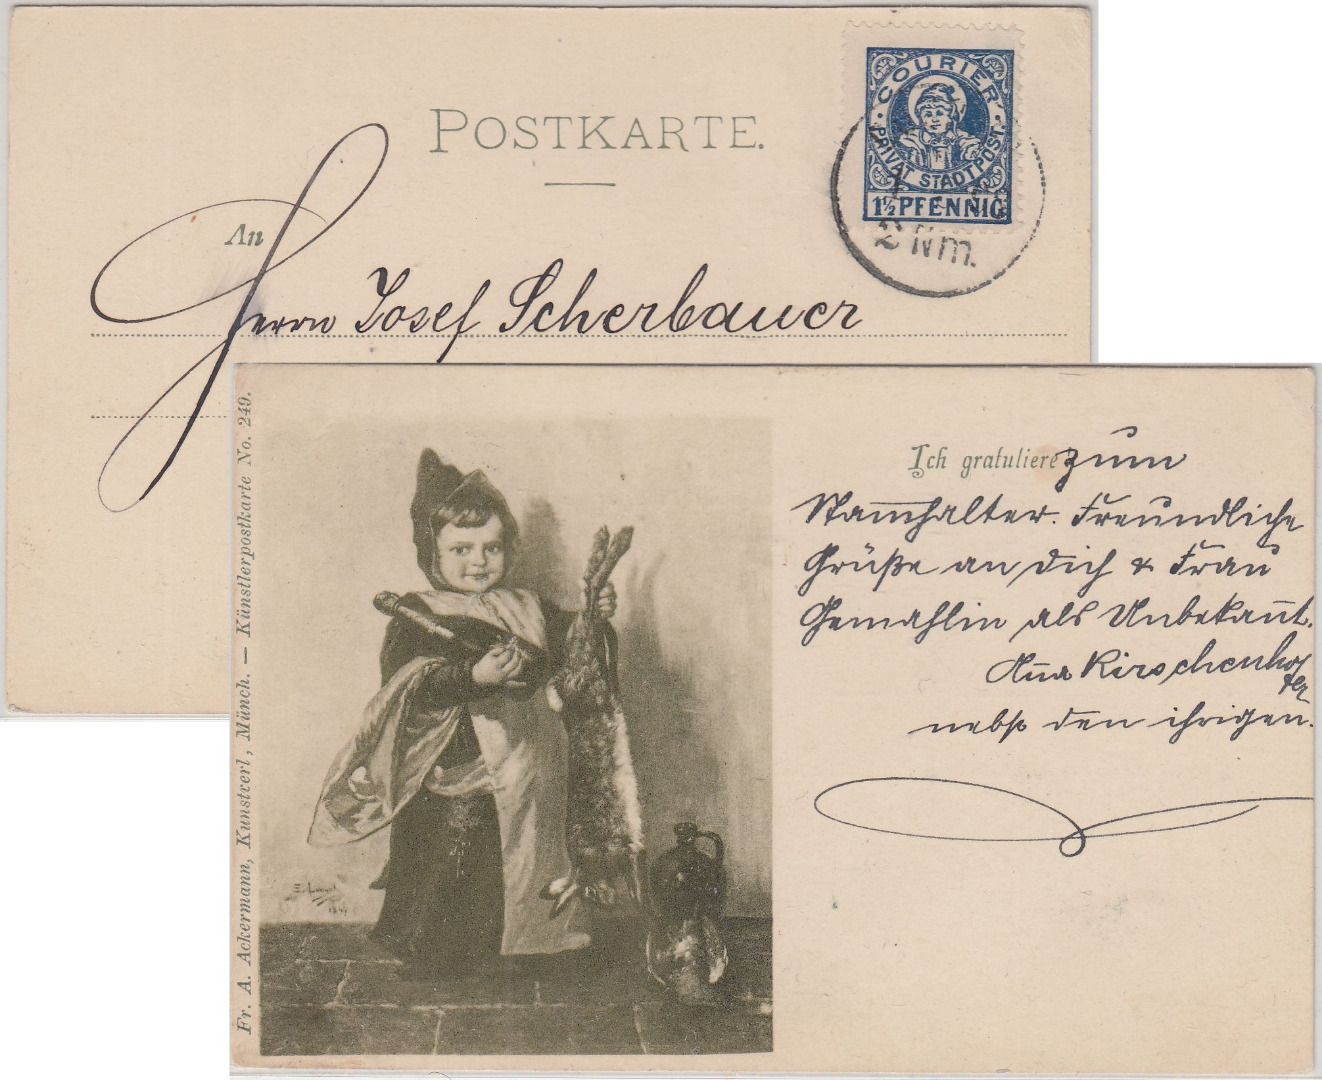 POSTKARTE.
COURIER
PRIVAT STADTPOST.
1½ PFENNIG
2 Nm.
An
Herrn Josef Scherbauer
Fr. A. Ackermann, Kunstverl, Münch. — Künstlerpostkarte No. 249.
Ich gratuliere zum
Stam̅halter. Freundliche
Grüße an dich & Frau
Gemahlin als Unbekan̅t.
An̅a Kirschenhofer
nebst den ihrigen.